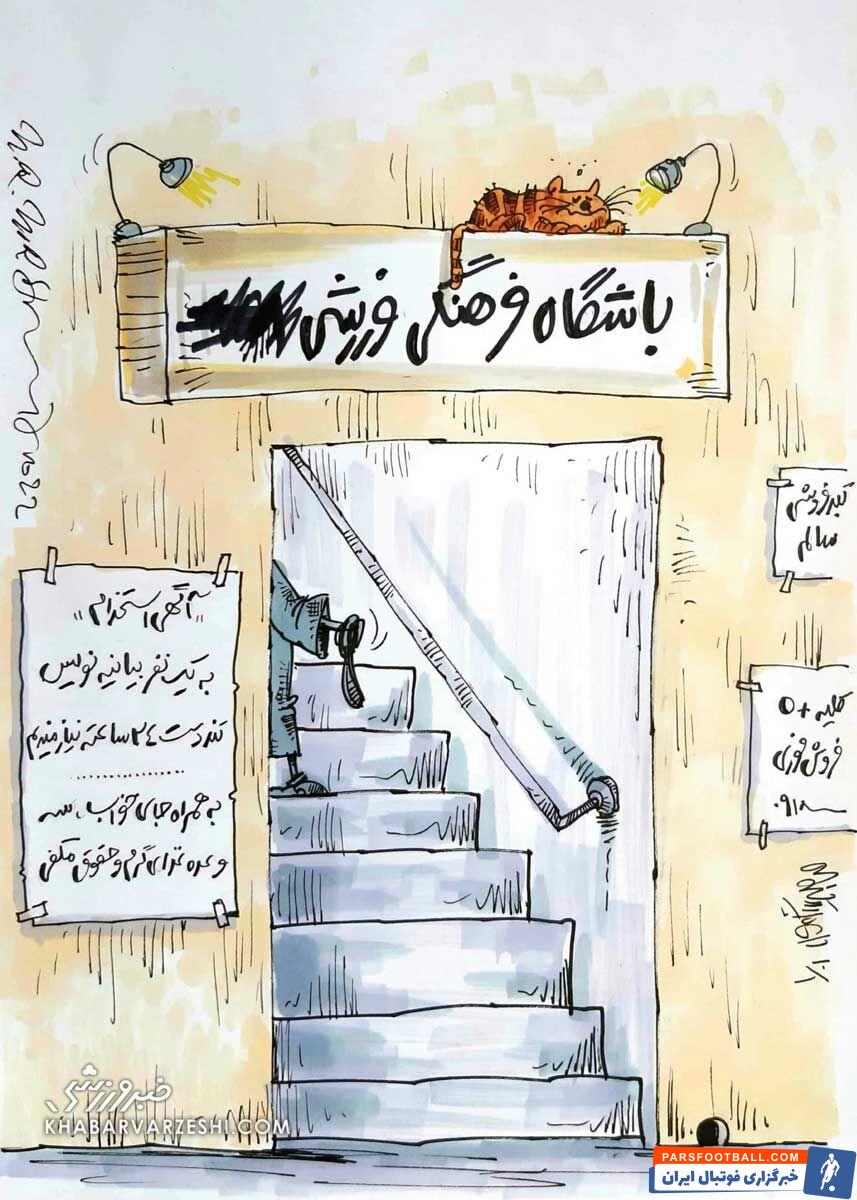 باشگاه فرهنگی ورزشی
"آگهی استخدام"
به یک نفر بیانیه نویس
تنددست ۲۴ ساعته نیازمندیم
..............
به همراه جای خواب، سه
وعده غذای گرم و حقوق مکفی
کبد فروشی
سالم
کلیه +O
فروش فوری
۰۹۱۸
خبرورزشی
KHABARVARZESHI.COM
PARSFOOTBALL.COM
خبرگزاری فوتبال ایران